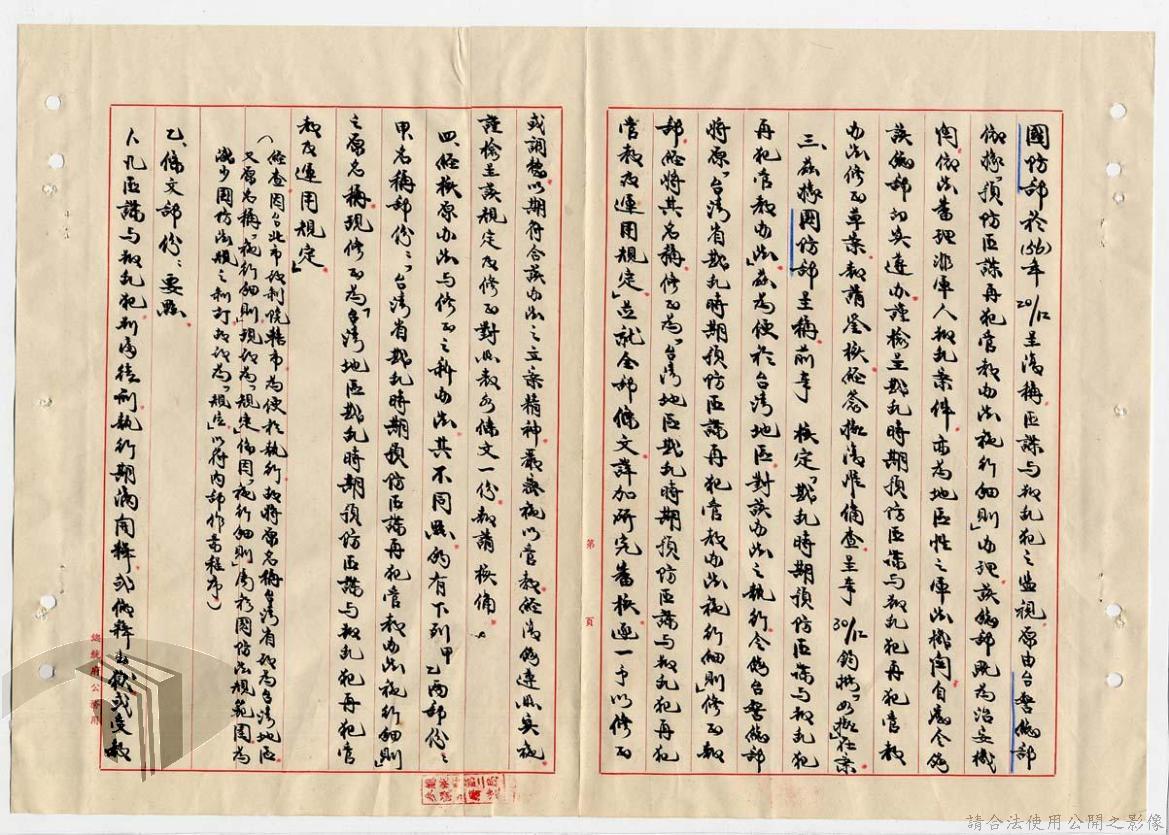 國防部於(56)年20/12呈復稱匪諜與叛亂犯之監視原由台警總部
依據「預防匪諜再犯管教辦法施行細則」辦理該總部既為治安機
關依法審理非軍人叛亂案件亦為地區性之軍法機關自應令飭
該總部切實遵辦謹檢呈戡亂時期預防匪諜與叛亂犯再犯管教
辦法修正草案教請鑒核經簽擬復准備查呈奉30/12鈞批「如擬」在案
三、茲據國防部呈稱前奉 核定「戡亂時期預防匪諜與叛亂犯
再犯管教辦法」茲為便於台灣地區對該辦法之執行令飭台警總部
將原「台灣省戡亂時期預防匪諜再犯管教辦法施行細則」修正報
部經將其名稱修正為「台灣地區戡亂時期預防匪諜與叛亂犯再犯
管教及運用規定」並就全部條文詳加研究審核逐一予以修正
或調整以期符合該辦法之立案精神嚴密施以管教經復飭遵照實施
謹檢呈該規定及修正對照表各條文一份敬請 核備。
四、經核原辦法與修正之新辦法其不同點約有下列甲乙兩部份:
甲、名稱部份:「台灣省戡亂時期預防匪諜再犯管教辦法施行細則」
之原名稱現修正為「台灣地區戡亂時期預防匪諜與叛亂犯再犯管
教及運用規定」
(經查因台北市改制院轄市為便於執行故將原名稱台灣省改為台灣地區
又原名稱「施行細則」現改為「規定」係因「施行細則」屬於國防法規範圍為
減少國防法規之制訂故改為「規定」以符內部作業程序)
乙、條文部份:要點
1.凡匪諜與叛亂犯判處徒刑執行期滿開釋或假釋出獄或受教
第 頁
總統府公務用
請合法使用公開之影像